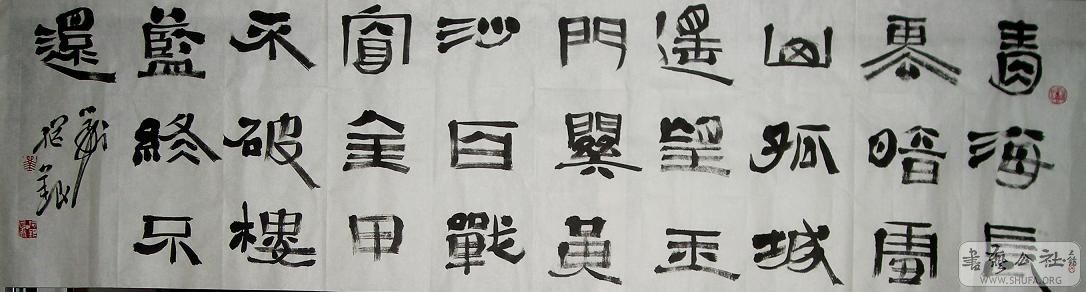 青海長
雲暗雪
山孤城
遙望玉
門關黃
沙百戰
穿金甲
不破樓
藍終不
還
書藝公社
WWW.SHUFA.ORG